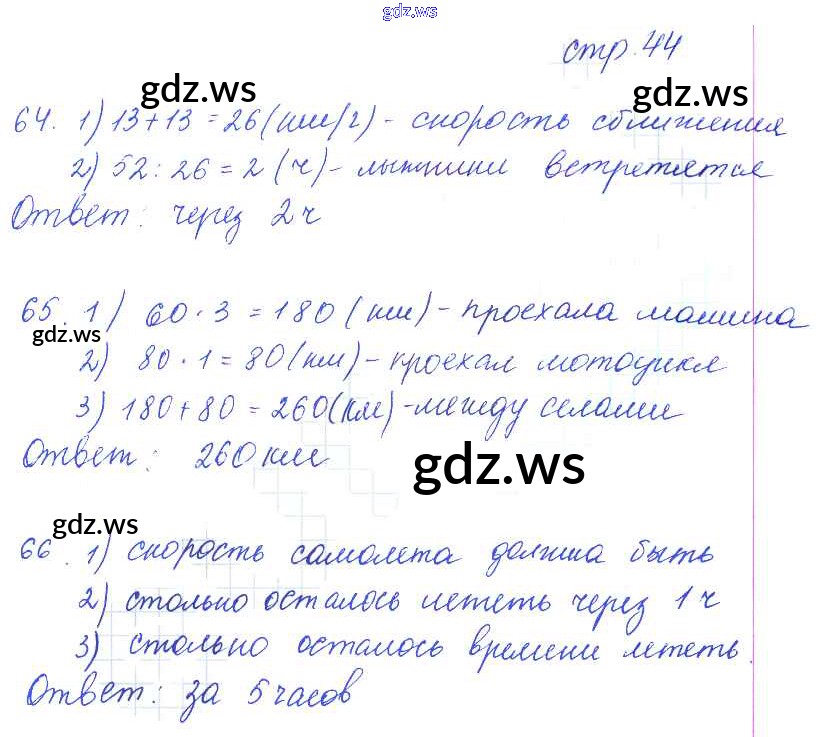 gdz.ws
стр. 44
gdz.ws
gdz.ws
64. 1) 13+13 = 26 (км/ч) - скорость сближения
2) 52 : 26 = 2 (ч) - лыжники встретятся
Ответ: через 2 ч
65. 1) 60 · 3 = 180 (км) - проехала машина
gdz.ws
2) 80 · 1 = 80 (км) - проехал мотоцикл
3) 180 + 80 = 260 (км) - между селами
Ответ: 260 км
gdz.ws
gdz.ws
66. 1) скорость самолета должна быть
2) столько осталось лететь через 1 ч
3) столько осталось времени лететь.
Ответ: за 5 часов